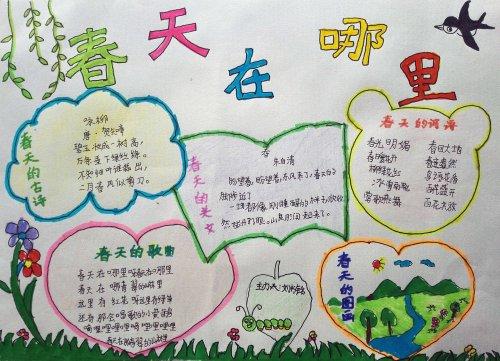 春天在哪里
春天的古诗
咏柳
唐·贺知章
碧玉妆成一树高,
万条垂下绿丝绦。
不知细叶谁裁出,
二月春风似剪刀。
春天的美文
春
朱自清
盼望着,盼望着,东风来了,春天的
脚步近了
一切都像刚睡醒的样子,欣欣
然张开了眼。山
起来了。
春天的词语
春光明媚
春回大地
百花盛开
百花齐放
春天的歌曲
春天在哪里呀春天在哪里
春天在
青翠的山林里
这里有红花呀这里有绿草
还有那会唱歌的小黄鹂
嘀哩哩哩哩嘀哩哩哩哩
春天的图画